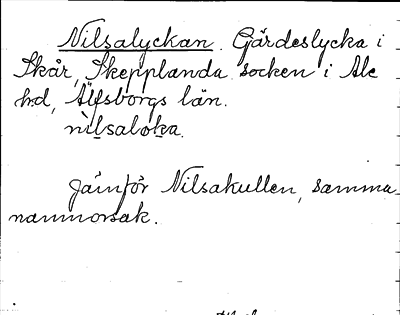 Nilsalyckan. Gärdeslycka i
Skår, Skepplanda socken i Ale
hd, Älfsborgs län.
nìlsaloka.
Jämför Nilsakullen, samma
namnorsak.